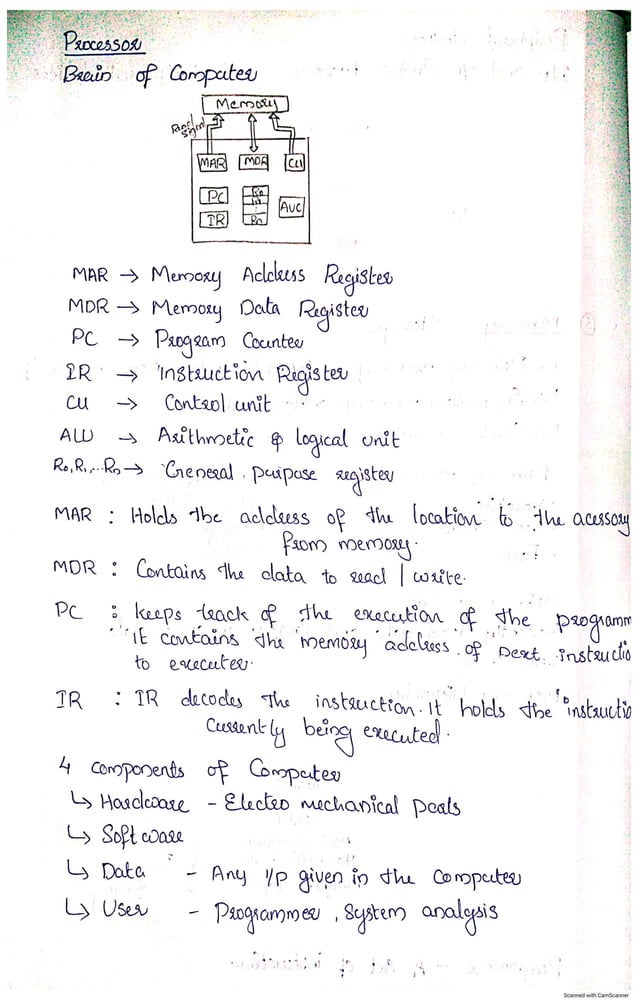 Processor
Brain of Computer
Memory
MAR MDR CU
PC
IR
R0
R1
Rn
MAR → Memory Address Register
MDR → Memory Data Register
PC → Program Counter
IR → Instruction Register
CU → Control unit
ALU → Arithmetic & logical unit
R0, R1,...Rn → General purpose register
MAR : Holds the address of the location to the acessory
from memory.
MDR : Contains the data to read / write.
PC : keeps track of the execution of the programm
it contains the memory address of next instructio
to executer.
IR : IR decodes the instruction. It holds the instructio
Currently being executed.
4 components of Computer
↳ Hardware - Electro mechanical peals
↳ Software
↳ Data - Any I/P given in the Computer
↳ User - Programmer, System analysis
Scanned with CamScanner